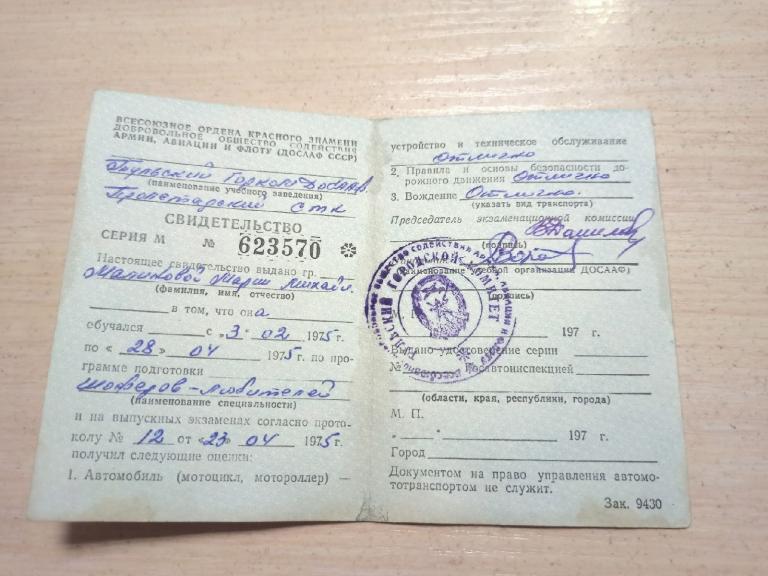 ВСЕСОЮЗНОЕ ОРДЕНА КРАСНОГО ЗНАМЕНИ
ДОБРОВОЛЬНОЕ ОБЩЕСТВО СОДЕЙСТВИЯ
АРМИИ, АВИАЦИИ И ФЛОТУ (ДОСААФ СССР)
Тульский Горком ДОСААФ
(наименование учебного заведения)
Пролетарский стк
СВИДЕТЕЛЬСТВО
СЕРИЯ М № 623570
Настоящее свидетельство выдано гр.
Малиховой Марии Михайл.
(фамилия, имя, отчество)
в том, что она
обучался с «3» 02 1975г.
по «28» 04 1975г. по про-
грамме подготовки
шоферов-любителей
(наименование специальности)
и на выпускных экзаменах согласно прото-
колу № 12 от «23» 04 1975г.
получил следующие оценки:
1. Автомобиль (мотоцикл, мотороллер) —
устройство и техническое обслуживание
отлично
2. Правила и основы безопасности до-
рожного движения отлично
3. Вождение Отлично.
(указать вид транспорта)
Председатель экзаменационной комиссии
(подпись)
(наименование учебной организации ДОСААФ)
(подпись)
ТУЛЬСКИЙ ГОРОДСКОЙ КОМИТЕТ
М.
197 г.
Выдано удостоверение серии
№ Госавтоинспекцией
(области, края, республики, города)
М. П.
„ “ 197 г.
Город
Документом на право управления автомо-
тотранспортом не служит.
Зак. 9430